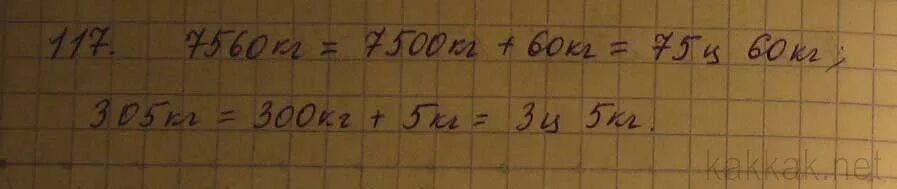 117. 7560кг = 7500кг + 60кг = 75ц 60кг;
305кг = 300кг + 5кг = 3ц 5кг.
kakkak.net